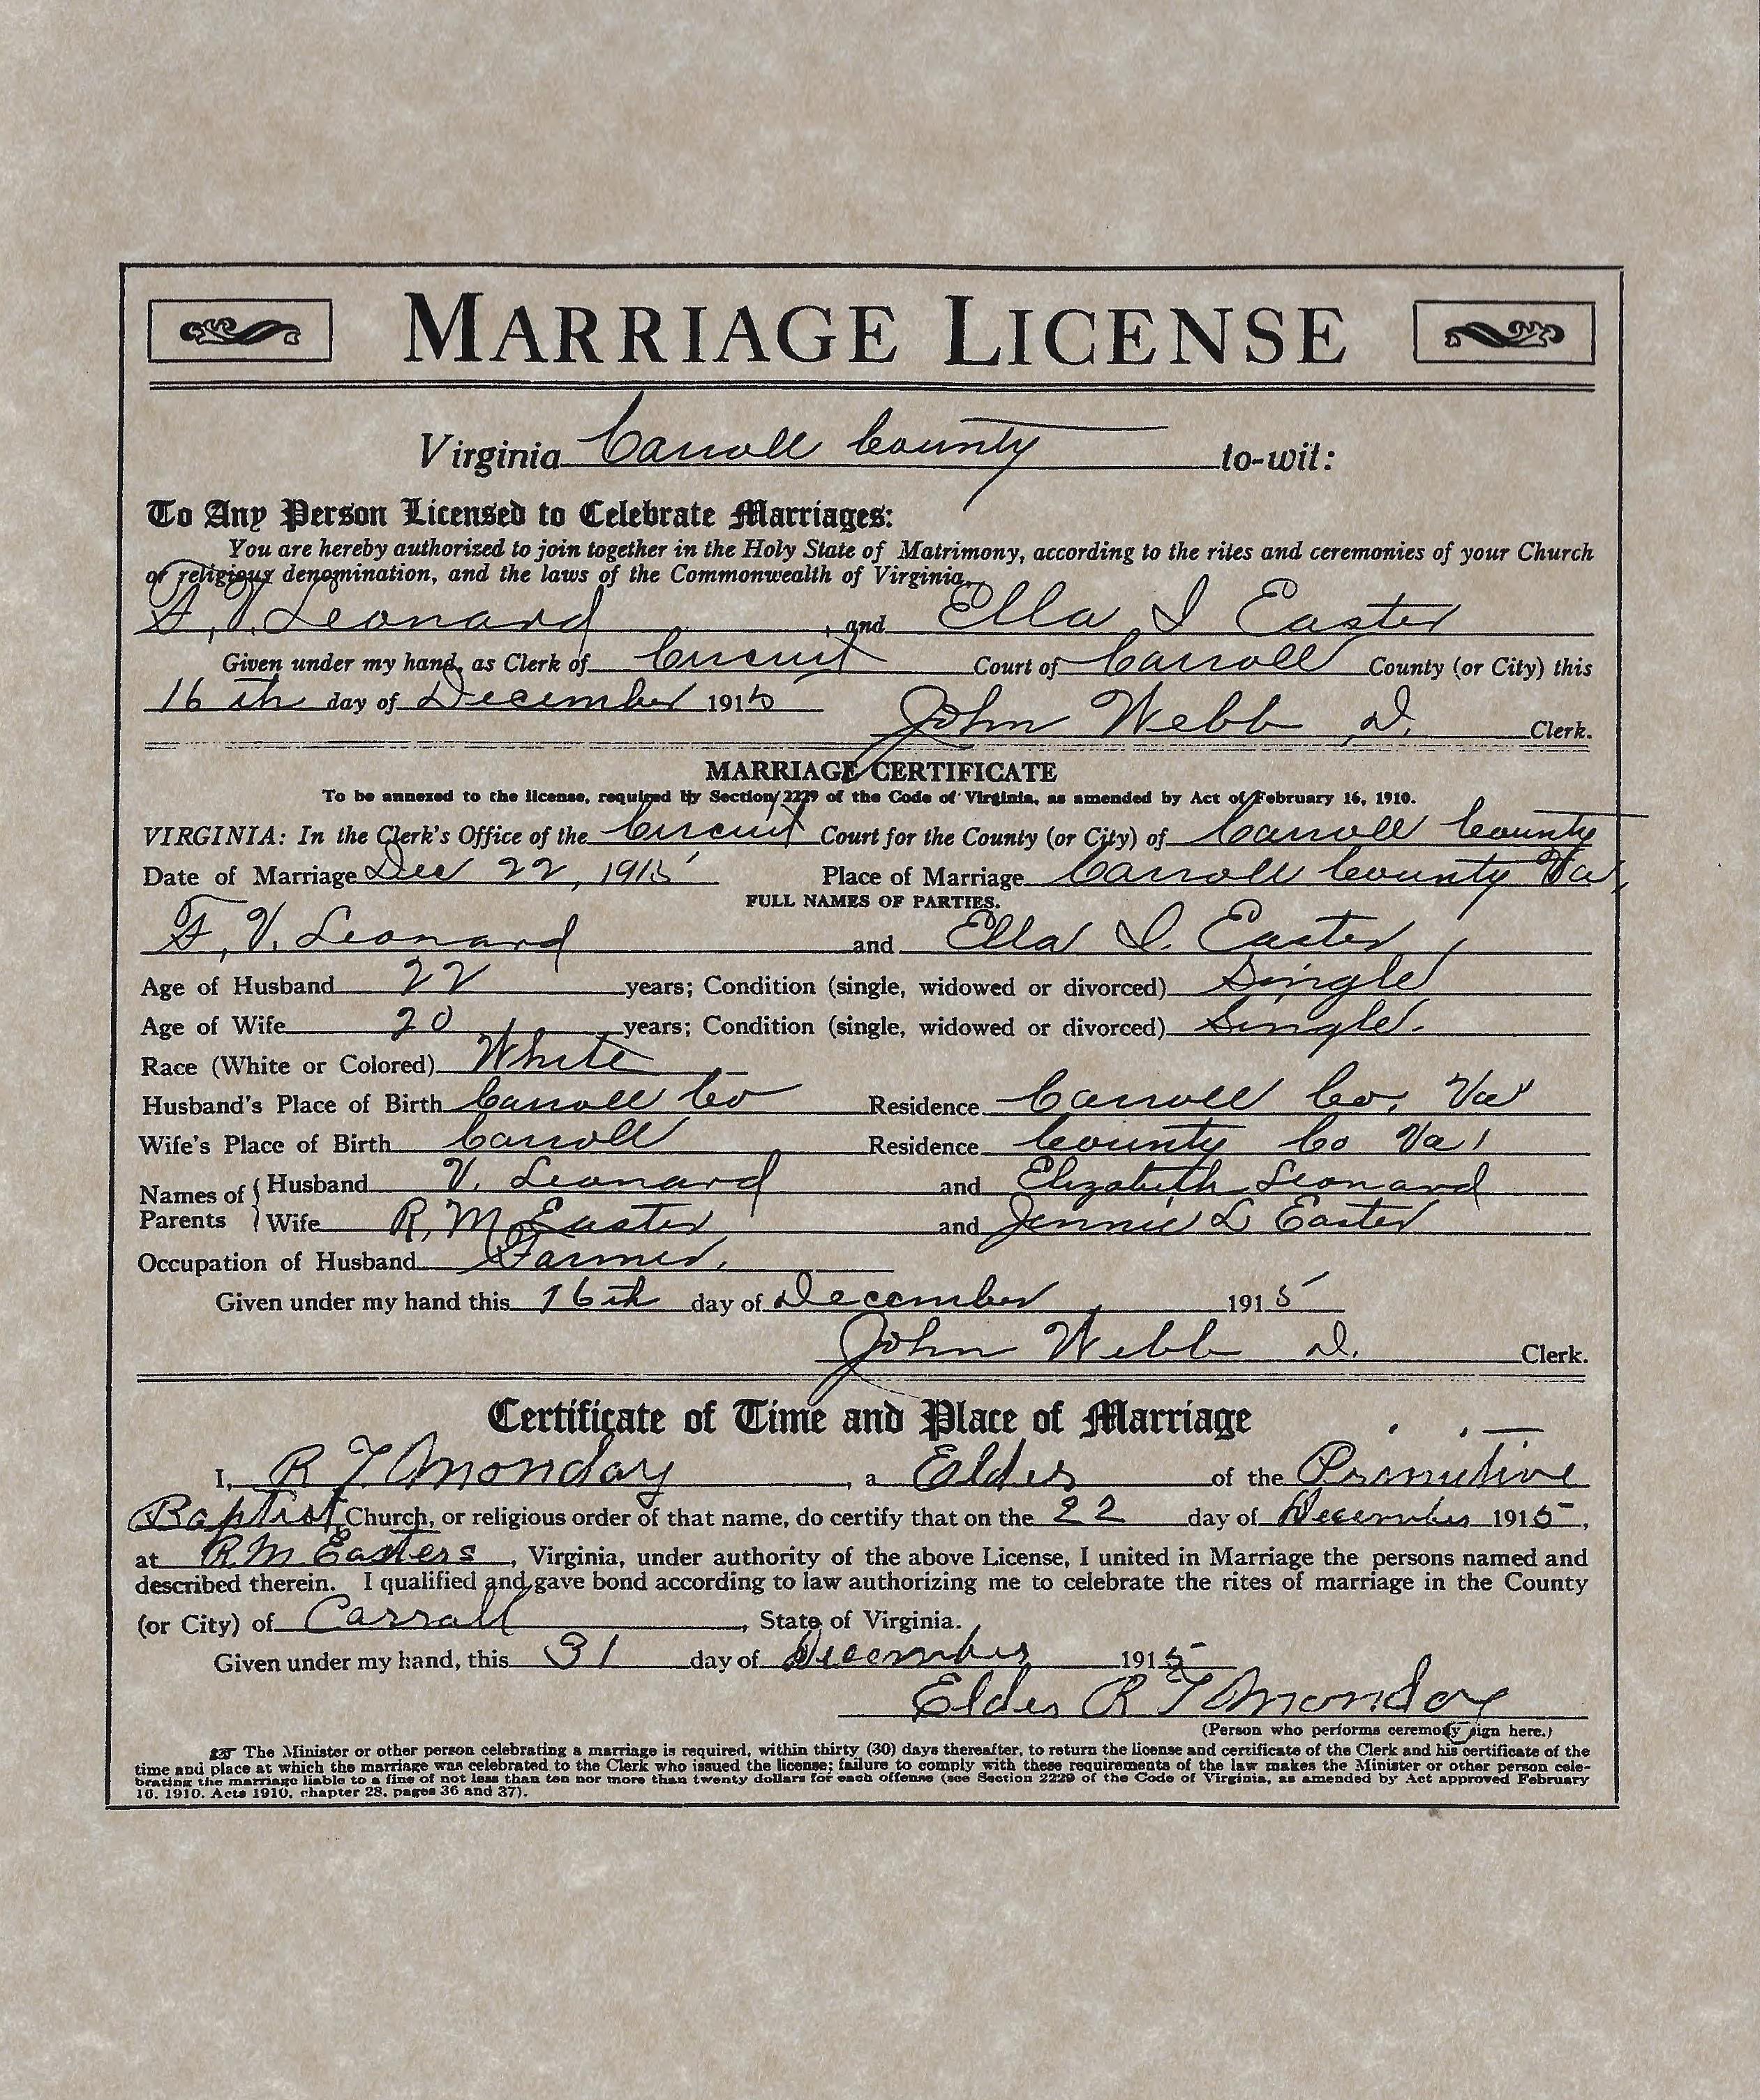 MARRIAGE LICENSE
Virginia Carroll County to-wit:
To Any Person Licensed to Celebrate Marriages:
You are hereby authorized to join together in the Holy State of Matrimony, according to the rites and ceremonies of your Church
or religious denomination, and the laws of the Commonwealth of Virginia,
F. V. Leonard, and Ella I Easter
Given under my hand, as Clerk of Circuit Court of Carroll County (or City) this
16th day of December 1915
John Webb D. Clerk.
MARRIAGE CERTIFICATE
To be annexed to the license, required by Section 2229 of the Code of Virginia, as amended by Act of February 16, 1910.
VIRGINIA: In the Clerk's Office of the Circuit Court for the County (or City) of Carroll County
Date of Marriage Dec 22, 1915 Place of Marriage Carroll County Va,
FULL NAMES OF PARTIES.
F. V. Leonard and Ella I. Easter
Age of Husband 22 years; Condition (single, widowed or divorced) Single
Age of Wife 20 years; Condition (single, widowed or divorced) Single.
Race (White or Colored) White
Husband's Place of Birth Carroll Co Residence Carroll Co. Va
Wife's Place of Birth Carroll Residence County Co Va
Names of Parents Husband V. Leonard and Elizabeth Leonard
Wife R. M. Easter and Jennie L Easter
Occupation of Husband Farmer.
Given under my hand this 16th day of December 1915
John Webb D. Clerk.
Certificate of Time and Place of Marriage
I, R T Monday, a Elder of the Primitive
Baptist Church, or religious order of that name, do certify that on the 22 day of December 1915,
at R. M Easters, Virginia, under authority of the above License, I united in Marriage the persons named and
described therein. I qualified and gave bond according to law authorizing me to celebrate the rites of marriage in the County
(or City) of Carroll, State of Virginia.
Given under my hand, this 31 day of December 1915
Elder R T Monday
(Person who performs ceremony sign here.)
☞ The Minister or other person celebrating a marriage is required, within thirty (30) days thereafter, to return the license and certificate of the Clerk and his certificate of the
time and place at which the marriage was celebrated to the Clerk who issued the license; failure to comply with these requirements of the law makes the Minister or other person cele-
brating the marriage liable to a fine of not less than ten nor more than twenty dollars for each offense (see Section 2229 of the Code of Virginia, as amended by Act approved February
16, 1910. Acts 1910, chapter 28, pages 36 and 37).